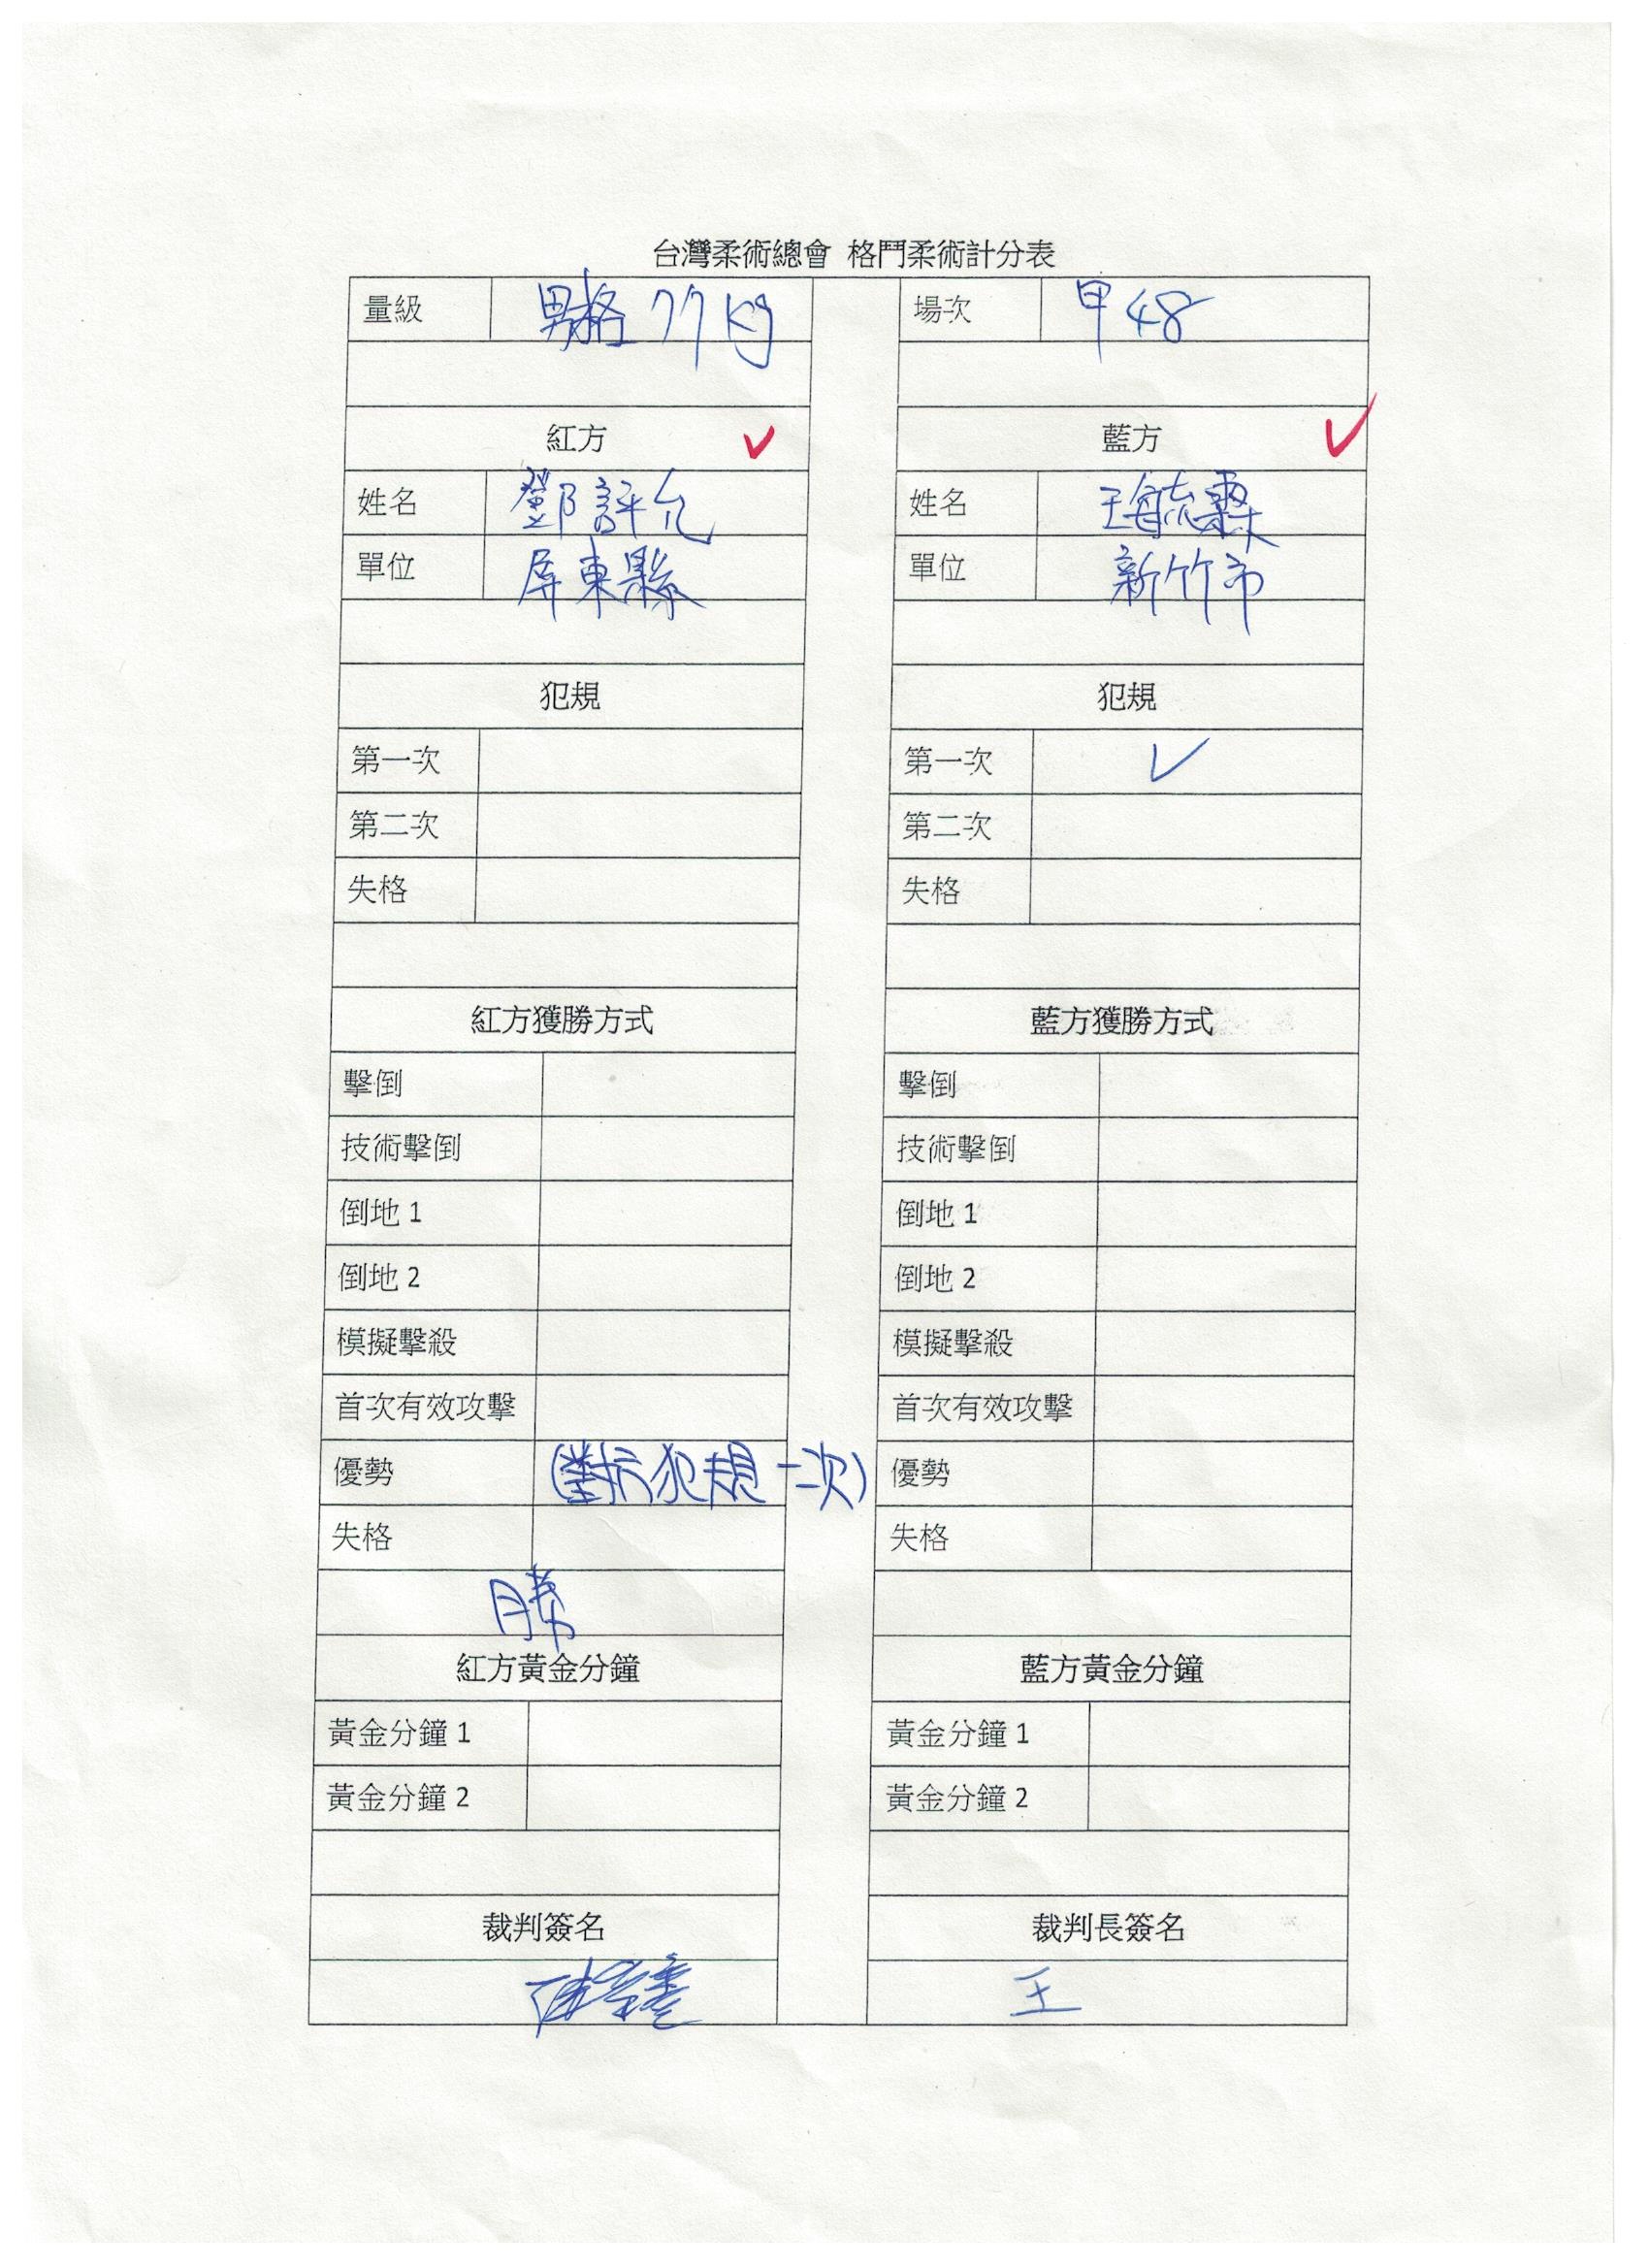 台灣柔術總會 格鬥柔術計分表
量級 男格 77 kg 場次 甲 48
紅方 ✓ 藍方 ✓
姓名 鄧評允 姓名 王毓
單位 屏東縣 單位 新竹市
犯規 犯規
第一次 第一次 ✓
第二次 第二次
失格 失格
紅方獲勝方式 藍方獲勝方式
擊倒 擊倒
技術擊倒 技術擊倒
倒地 1 倒地 1
倒地 2 倒地 2
模擬擊殺 模擬擊殺
首次有效攻擊 首次有效攻擊
優勢 (對方犯規一次) 優勢
失格 失格
勝
紅方黃金分鐘 藍方黃金分鐘
黃金分鐘 1 黃金分鐘 1
黃金分鐘 2 黃金分鐘 2
裁判簽名 裁判長簽名
王